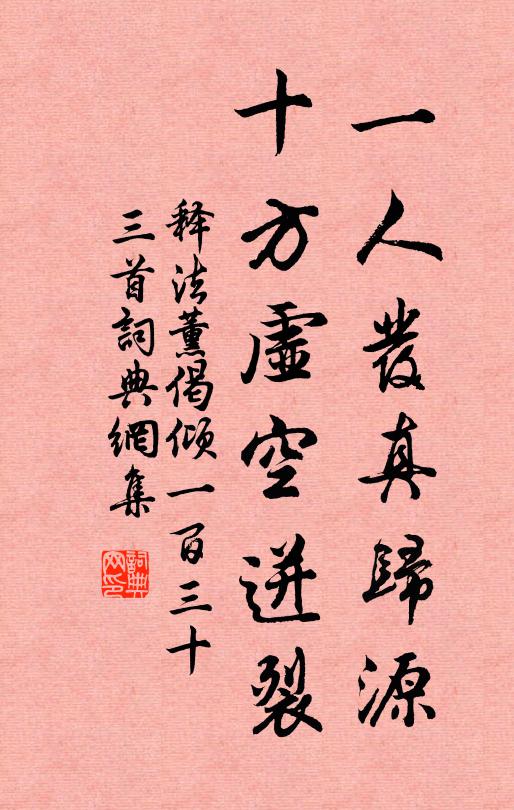 一人發真歸源
十方虛空迸裂
释法薰偈倾一百三十
三首詞典網集
詞典
网印